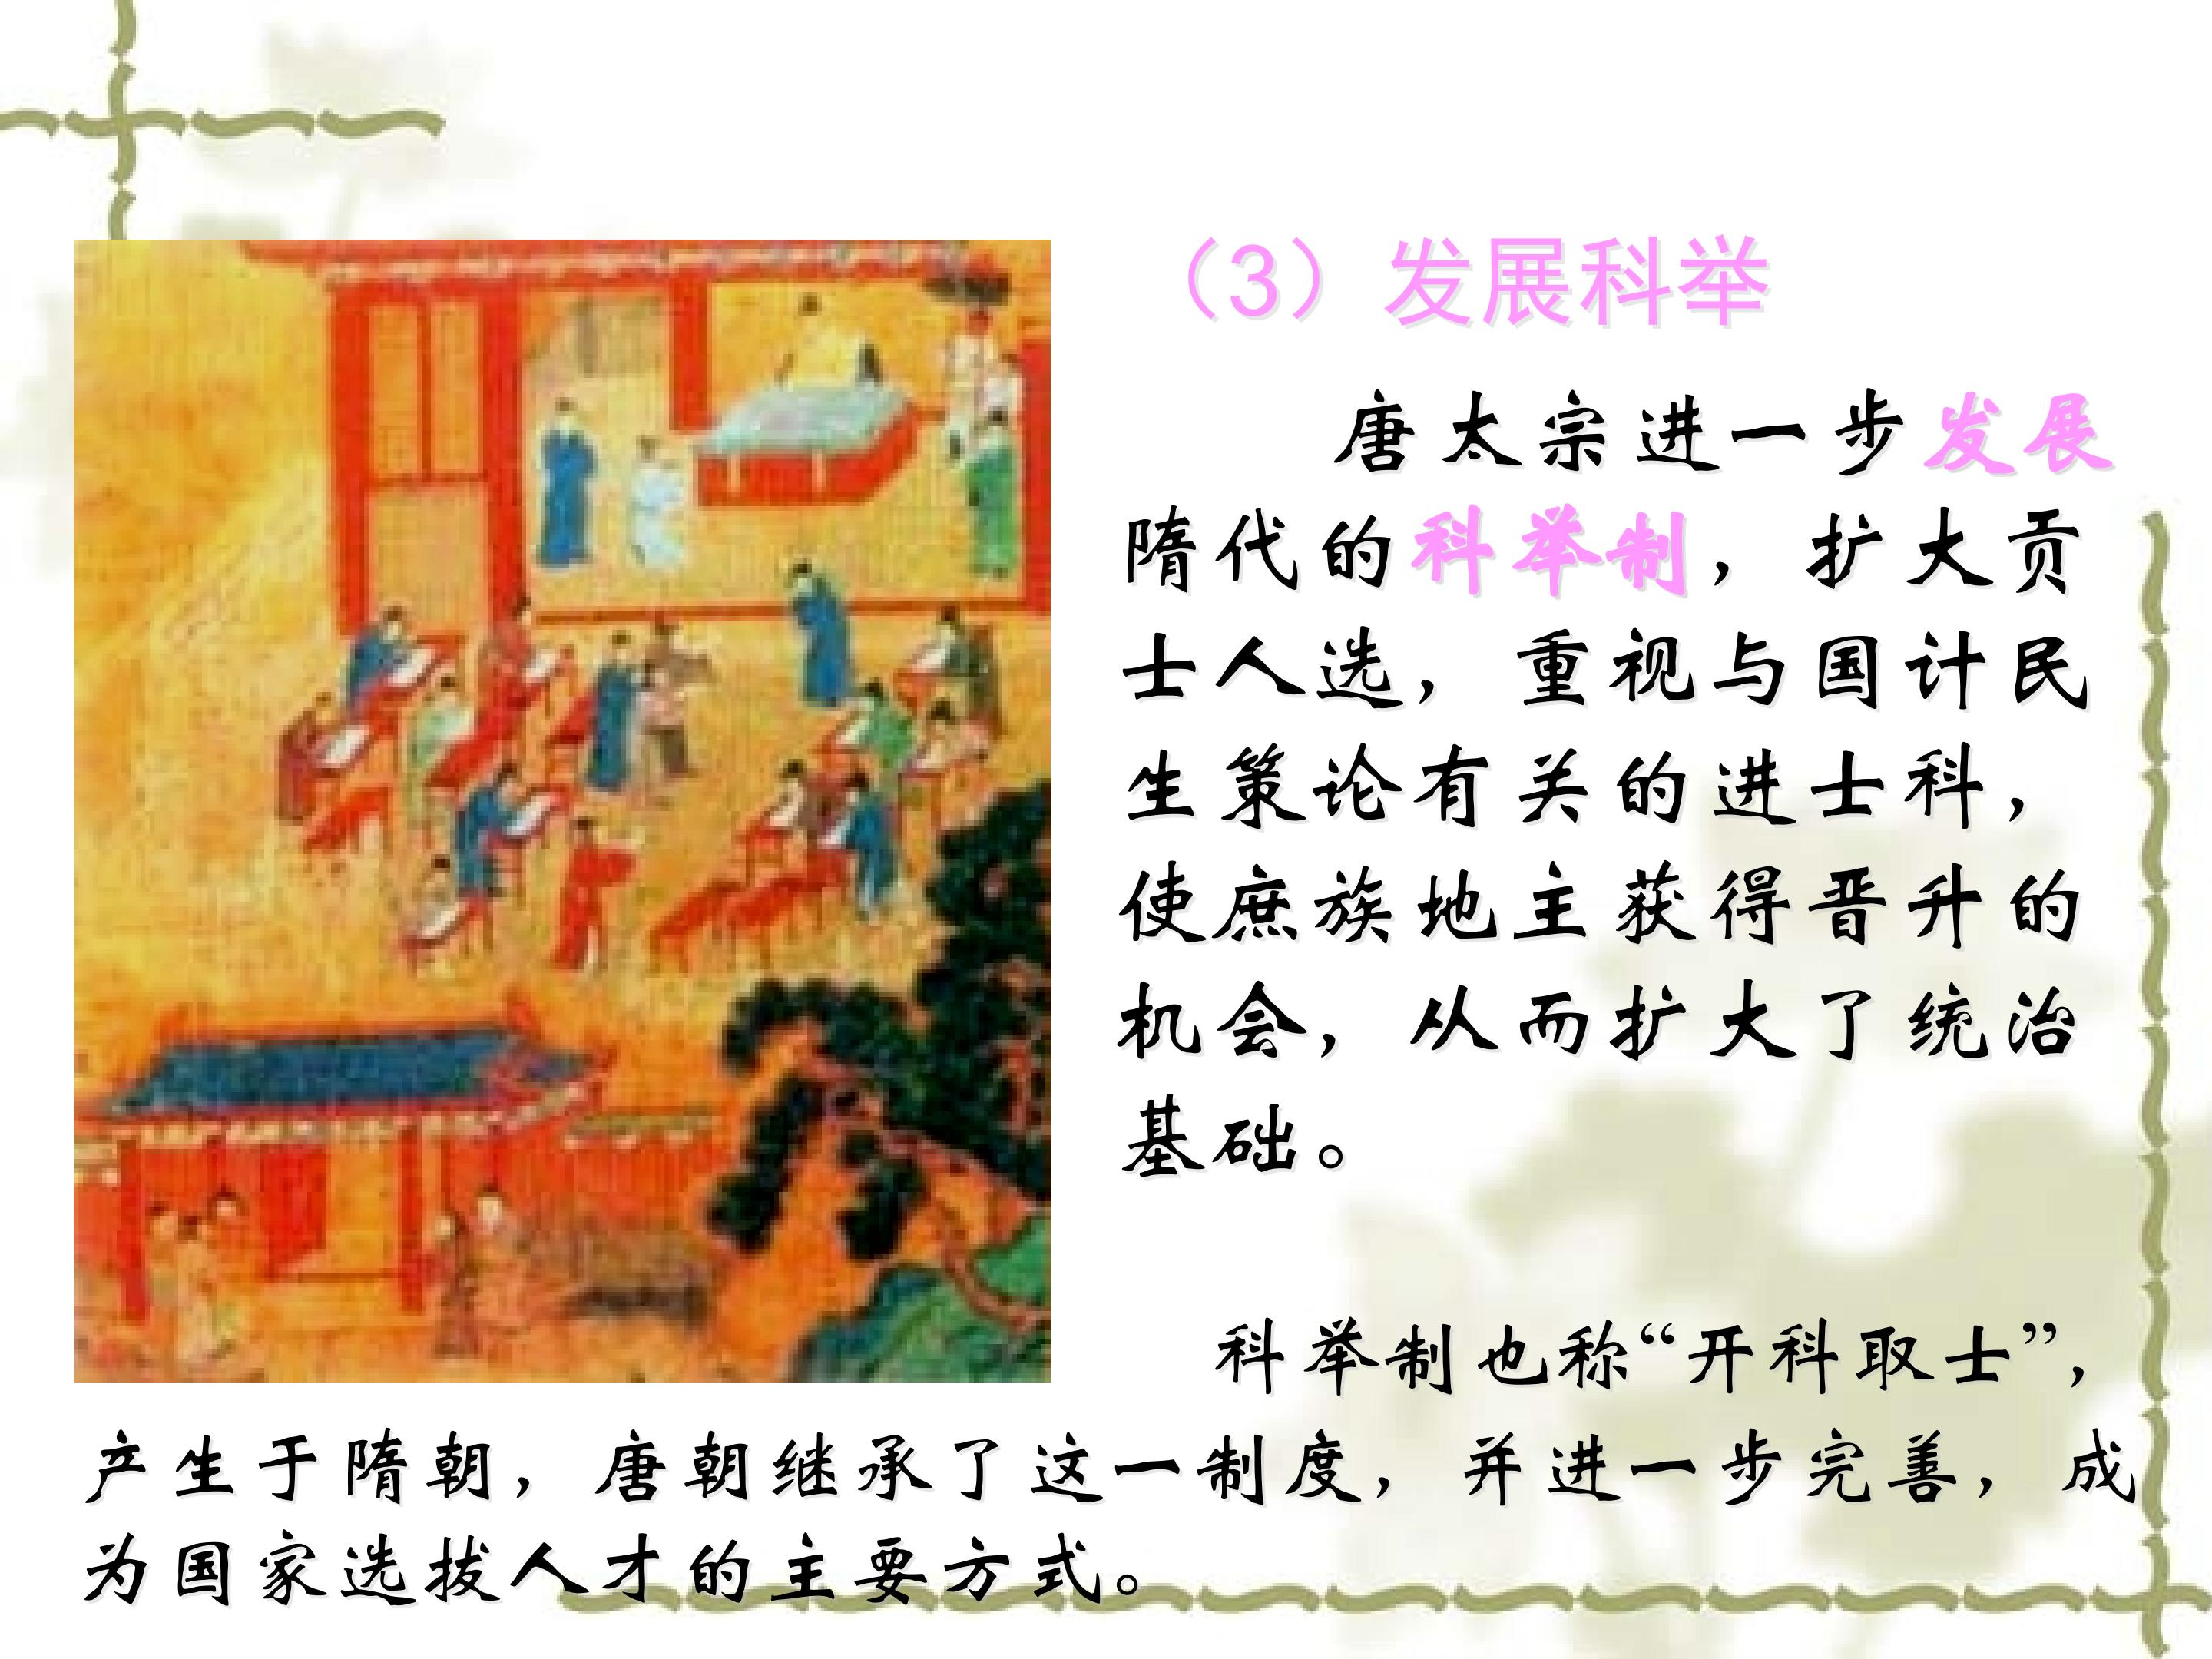 （3）发展科举
唐太宗进一步发展
隋代的科举制，扩大贡
士人选，重视与国计民
生策论有关的进士科，
使庶族地主获得晋升的
机会，从而扩大了统治
基础。
科举制也称“开科取士”，
产生于隋朝，唐朝继承了这一制度，并进一步完善，成
为国家选拔人才的主要方式。